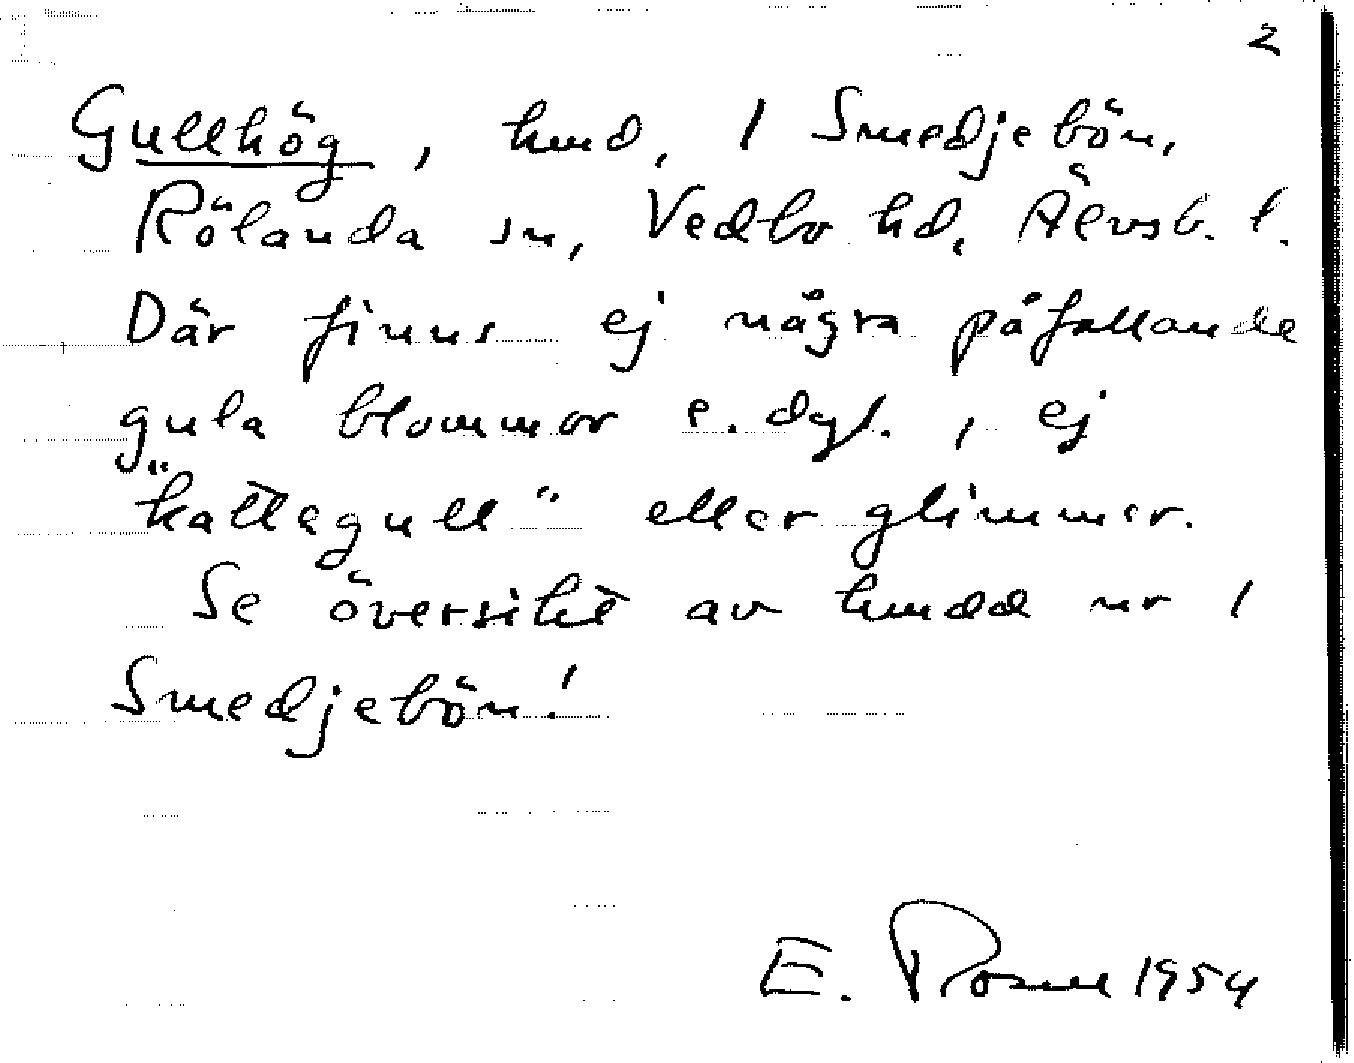 2
Gullhög, hmd, 1 Smedjebön,
Rölanda sn, Vedbo hd, Älvsb. l.
Där finns ej några påfallande
gula blommor e. dyl., ej
"kattegull" eller glimmer.
Se översikt av hmdd nr 1
Smedjebön!
E. 1954